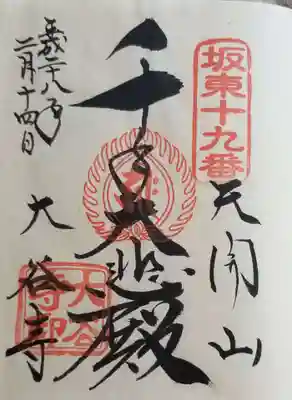 坂東十九番
天開山
千手大悲殿
平成二八年
二月十四日
大谷寺
大谷
寺印